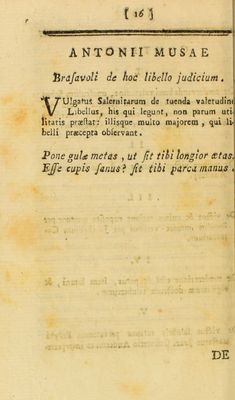 [ 16 ]
ANTONII MUSAE
Brasavoli de hoc libello judicium.
VUlgatus Salernitarum de tuenda valetudine
Libellus, his qui legunt, non parum uti-
litatis præstat: illisque multo majorem, qui li-
belli præcepta observant.
Pone gulæ metas, ut sit tibi longior ætas.
Esse cupis sanus? sit tibi parca manus.
DE